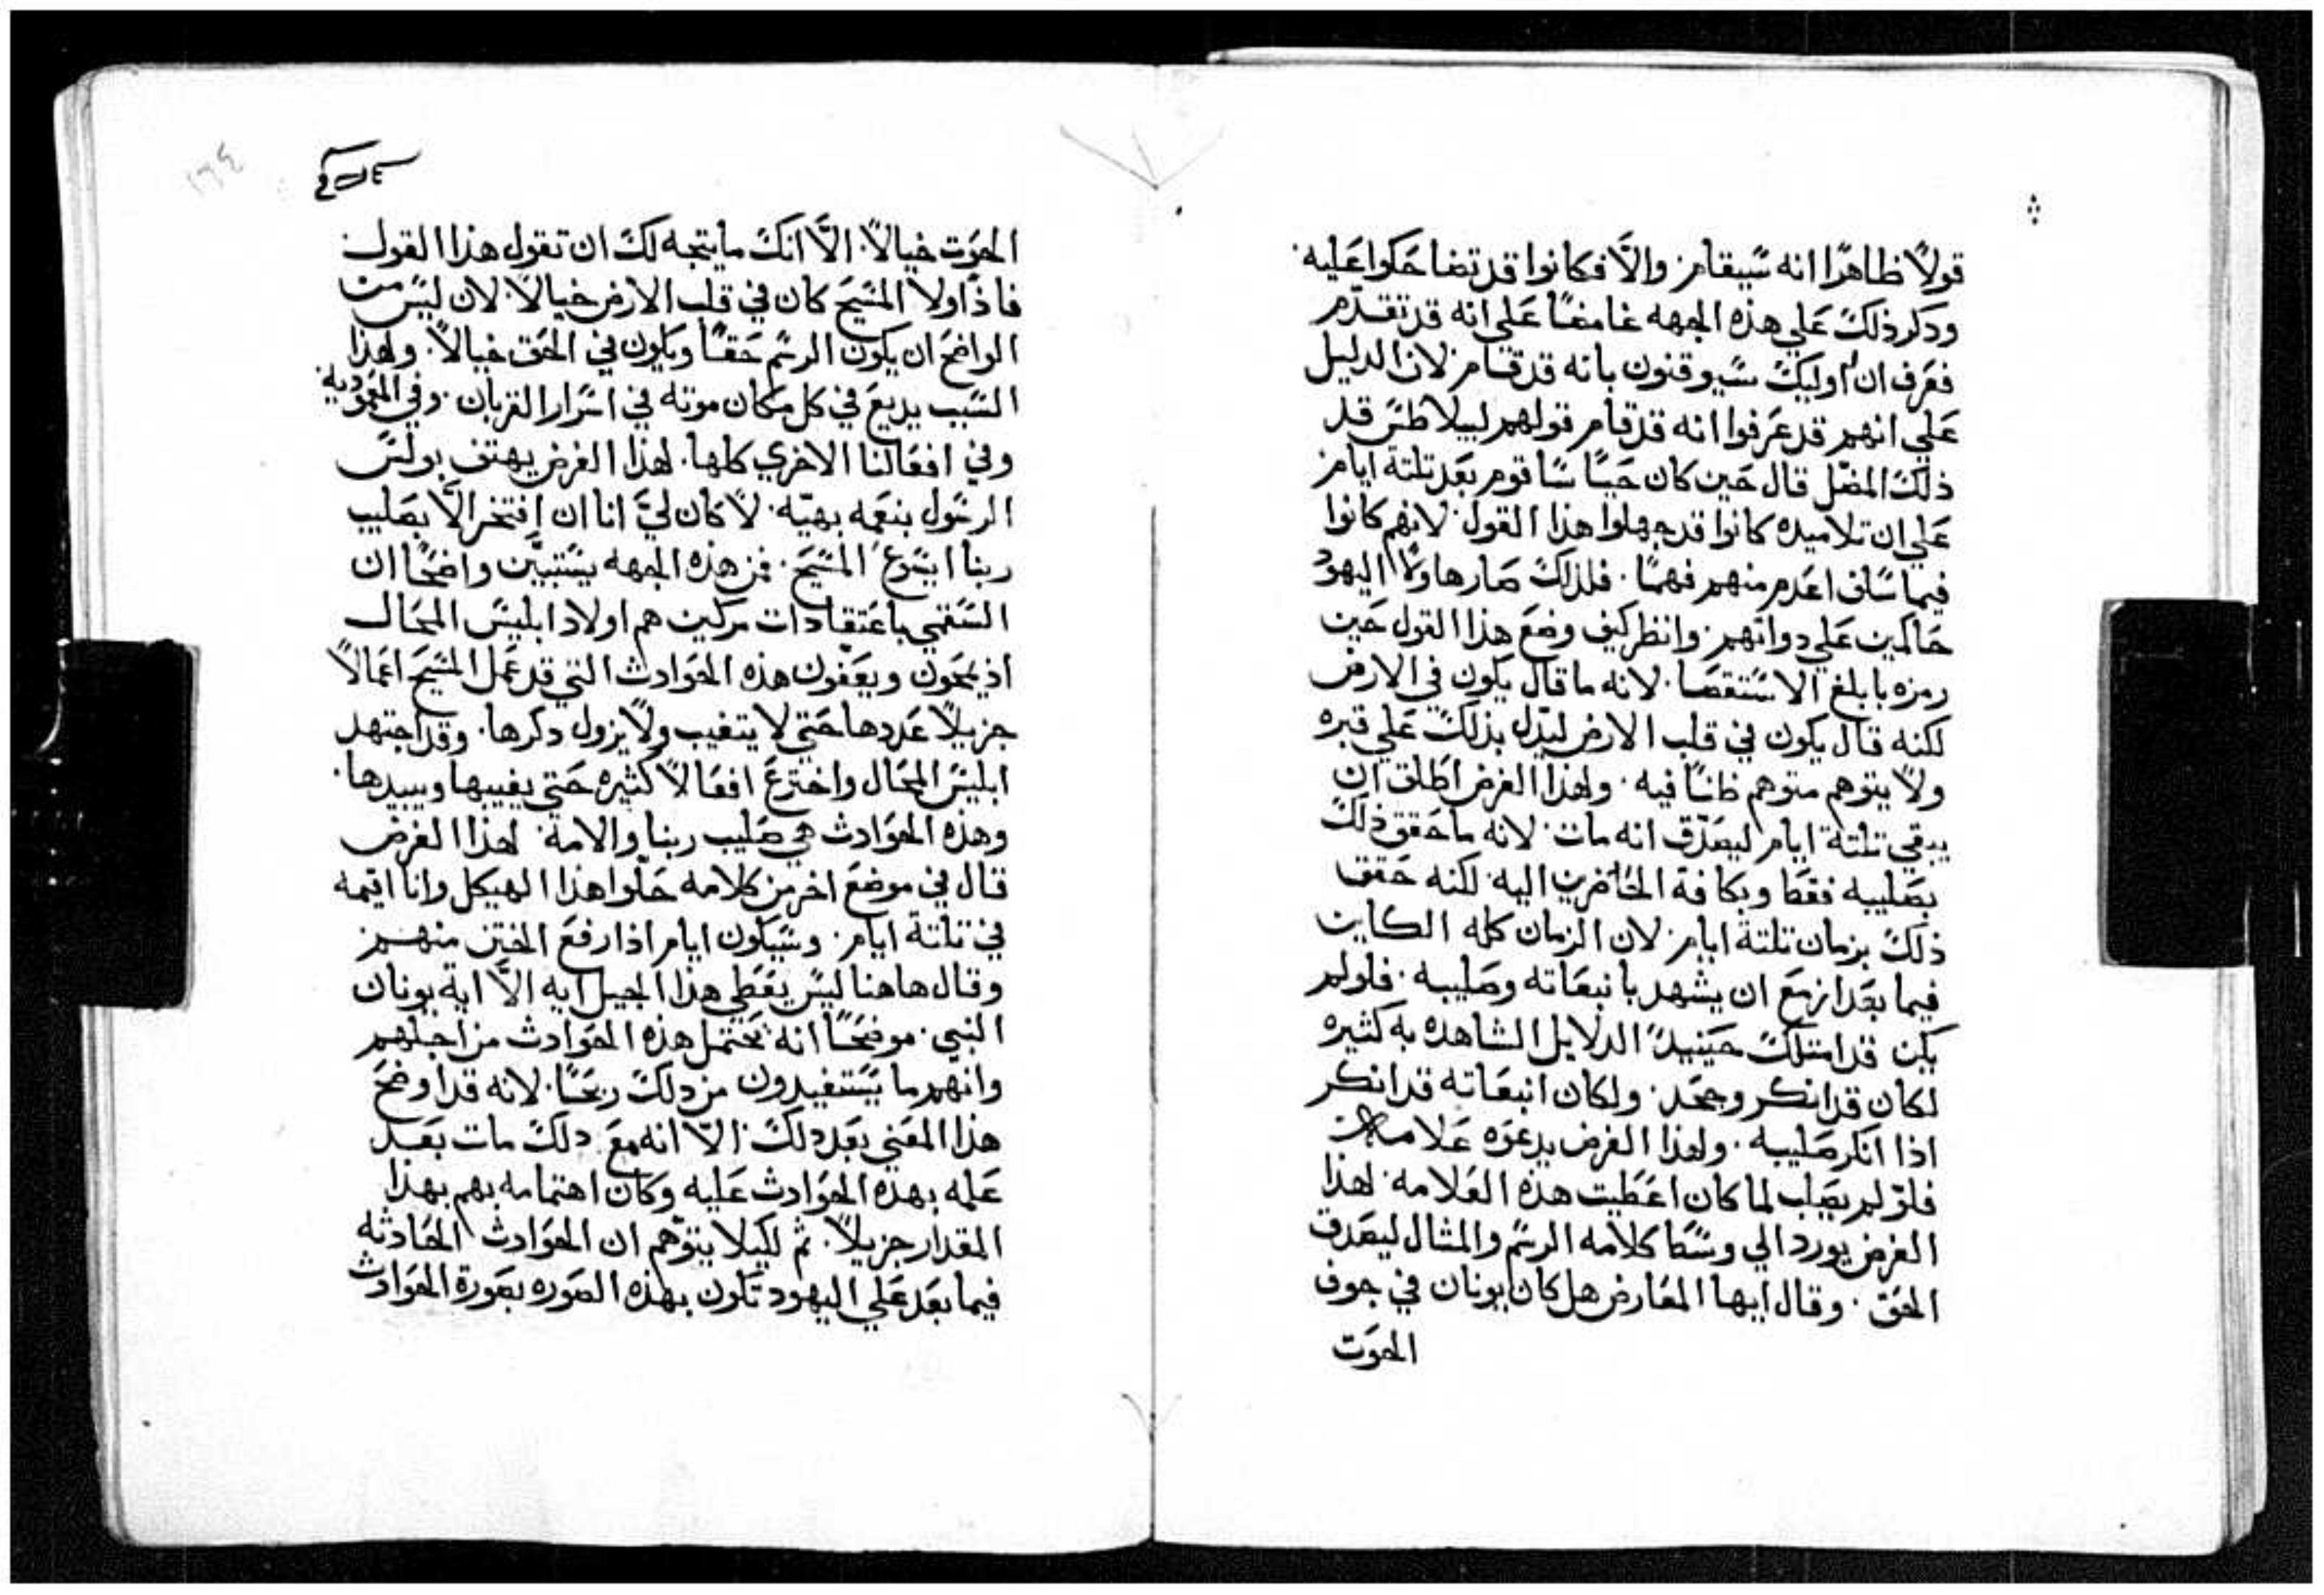 قولاً ظاهراً انه سيقام. والاّ فكانوا قد تضاحكوا عليه.
ودكر ذلك علي هذه الجهه غامضاً علي انه قد تقدم
فعرف ان اوليك سيوقنون بانه قد قام. لان الدليل
علي انهم قد عرفوا انه قد قام قولهم لبيلاطس قد
ذلك المضل قال حين كان حياً ساقوم بعد تلتة ايام.
علي ان تلاميده كانوا قد جهلوا هذا القول. لانهم كانوا
فيما سلف اعدم منهم فهماً. فلذلك صار هاولاً اليهود
حاكمين علي دواتهم. وانظر كيف وضع هذا القول حين
رمزه بابلغ الاستقصا. لانه ما قال يكون في الارض
لكنه قال يكون في قلب الارض ليدل بذلك علي قبره
ولا يتوهم متوهم ظناً فيه. ولهذا الغرض اطلق ان
يبقي تلتة ايام ليصدق انه مات. لانه ما حقق ذلك
بصليبه فقط وبكافة الحاضرين اليه. لكنه حقق
ذلك بزمان تلتة ايام. لان الزمان كله الكاين
فيما بعد ازمع ان يشهد بانبعاته وصليبه. فلو لم
يكن قد امتلك حينيدً الدلايل الشاهده به كثيره
لكان قد انكر وجحد. ولكان انبعاته قد انكر
اذا انكر صليبه. ولهذا الغرض يدعوه علامه
فلو لم يصلب لما كان اعطيت هذه العلامه. لهذا
الغرض يورد الي وسط كلامه الرسم والمثال ليصدق
الحق. وقال ايها المعارض هل كان يونان في جوف
الحوت
١٦٤
الحوت خيالاً. الاّ انك ما يتجه لك ان تقول هذا القول
فاذاً ولا المسيح كان في قلب الارض خيالاً. لان ليس من
الواضح ان يكون الرسم حقاً ويكون في الحق خيالاً. ولهذا
السبب يديع في كل مكان موته في اسرار القربان. وفي المعموديه
وفي افعالنا الاخري كلها. لهذا الغرض يهتف بولس
الرسول بنغمه بهيّه. لا كان ليَ انا ان افتخر الاّ بصليب
ربنا ايسوع المسيح. فمن هذه الجهه يستبيّن واضحاً ان
السقمي باعتقادات مركين هم اولاد ابليس المحال
اذ يمحون ويعفّون هذه الحوادث التي قد عمل المسيح اعمالاً
جزيلاً عددها حتي لا يتغيب ولا يزول دكرها. وقد اجتهد
ابليس المحال واخترع افعالاً كثيره حتي يغيبها ويبيدها.
وهذه الحوادث هي صليب ربنا والامه. لهذا الغرض
قال في موضع اخر من كلامه حلّوا هذا الهيكل وانا اقيمه
في تلتة ايام. وسيكون ايام اذا رفع الختن منهم.
وقال هاهنا ليس يعطي هذا الجيل ايه الاّ اية يونان
النبي. موضحاً انه يحتمل هذه الحوادث من اجلهم
وانهم ما يستفيدون من دلك ربحاً. لانه قد اوضح
هذا المعني بعد دلك. الاّ انه مع دلك مات بعد
علمه بهذه الحوادث عليه وكان اهتمامه بهم بهذا
المقدار جزيلاً. ثم لكيلا يتوهّم ان الحوادث الحادثه
فيما بعد علي اليهود تكون بهذه الصوره بصورة الحوادث